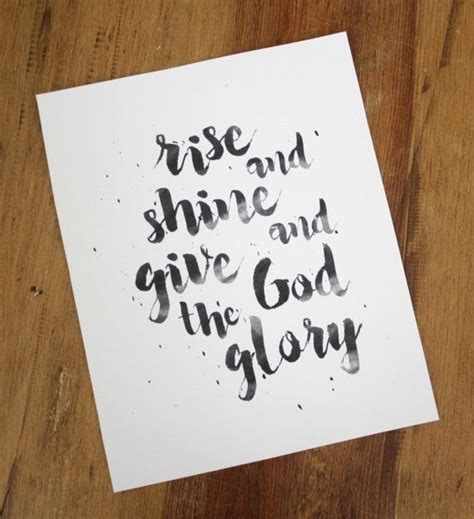 rise and
shine and
give God
the glory